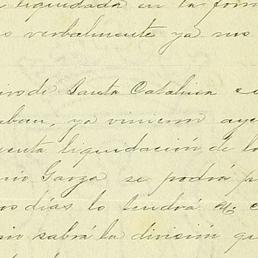 liquidada en la form
verbalmente ya nos
de Santa Catalina
ya vinieron aye
uenta liquidación de lo
Garza se podrá p
os días lo tendrá aq
sabrá la división qu